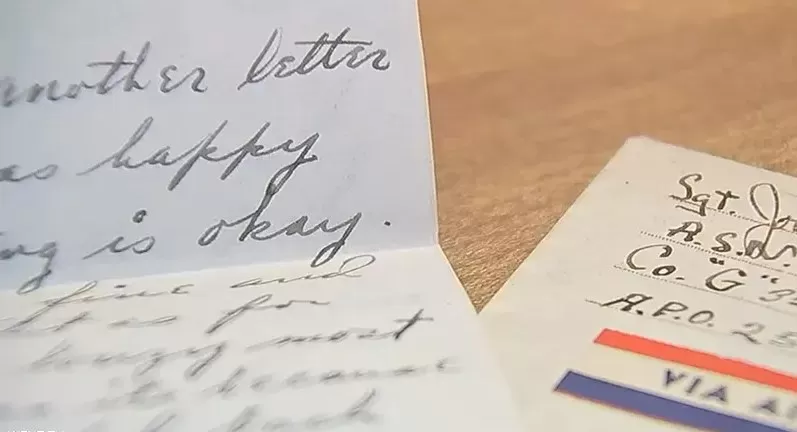 another letter
as happy
ng is okay.
fine and
as for
lousy most
its because
Sgt. Jo
A.S.N.
Co. "G" 3
A.P.O. 25
VIA AI